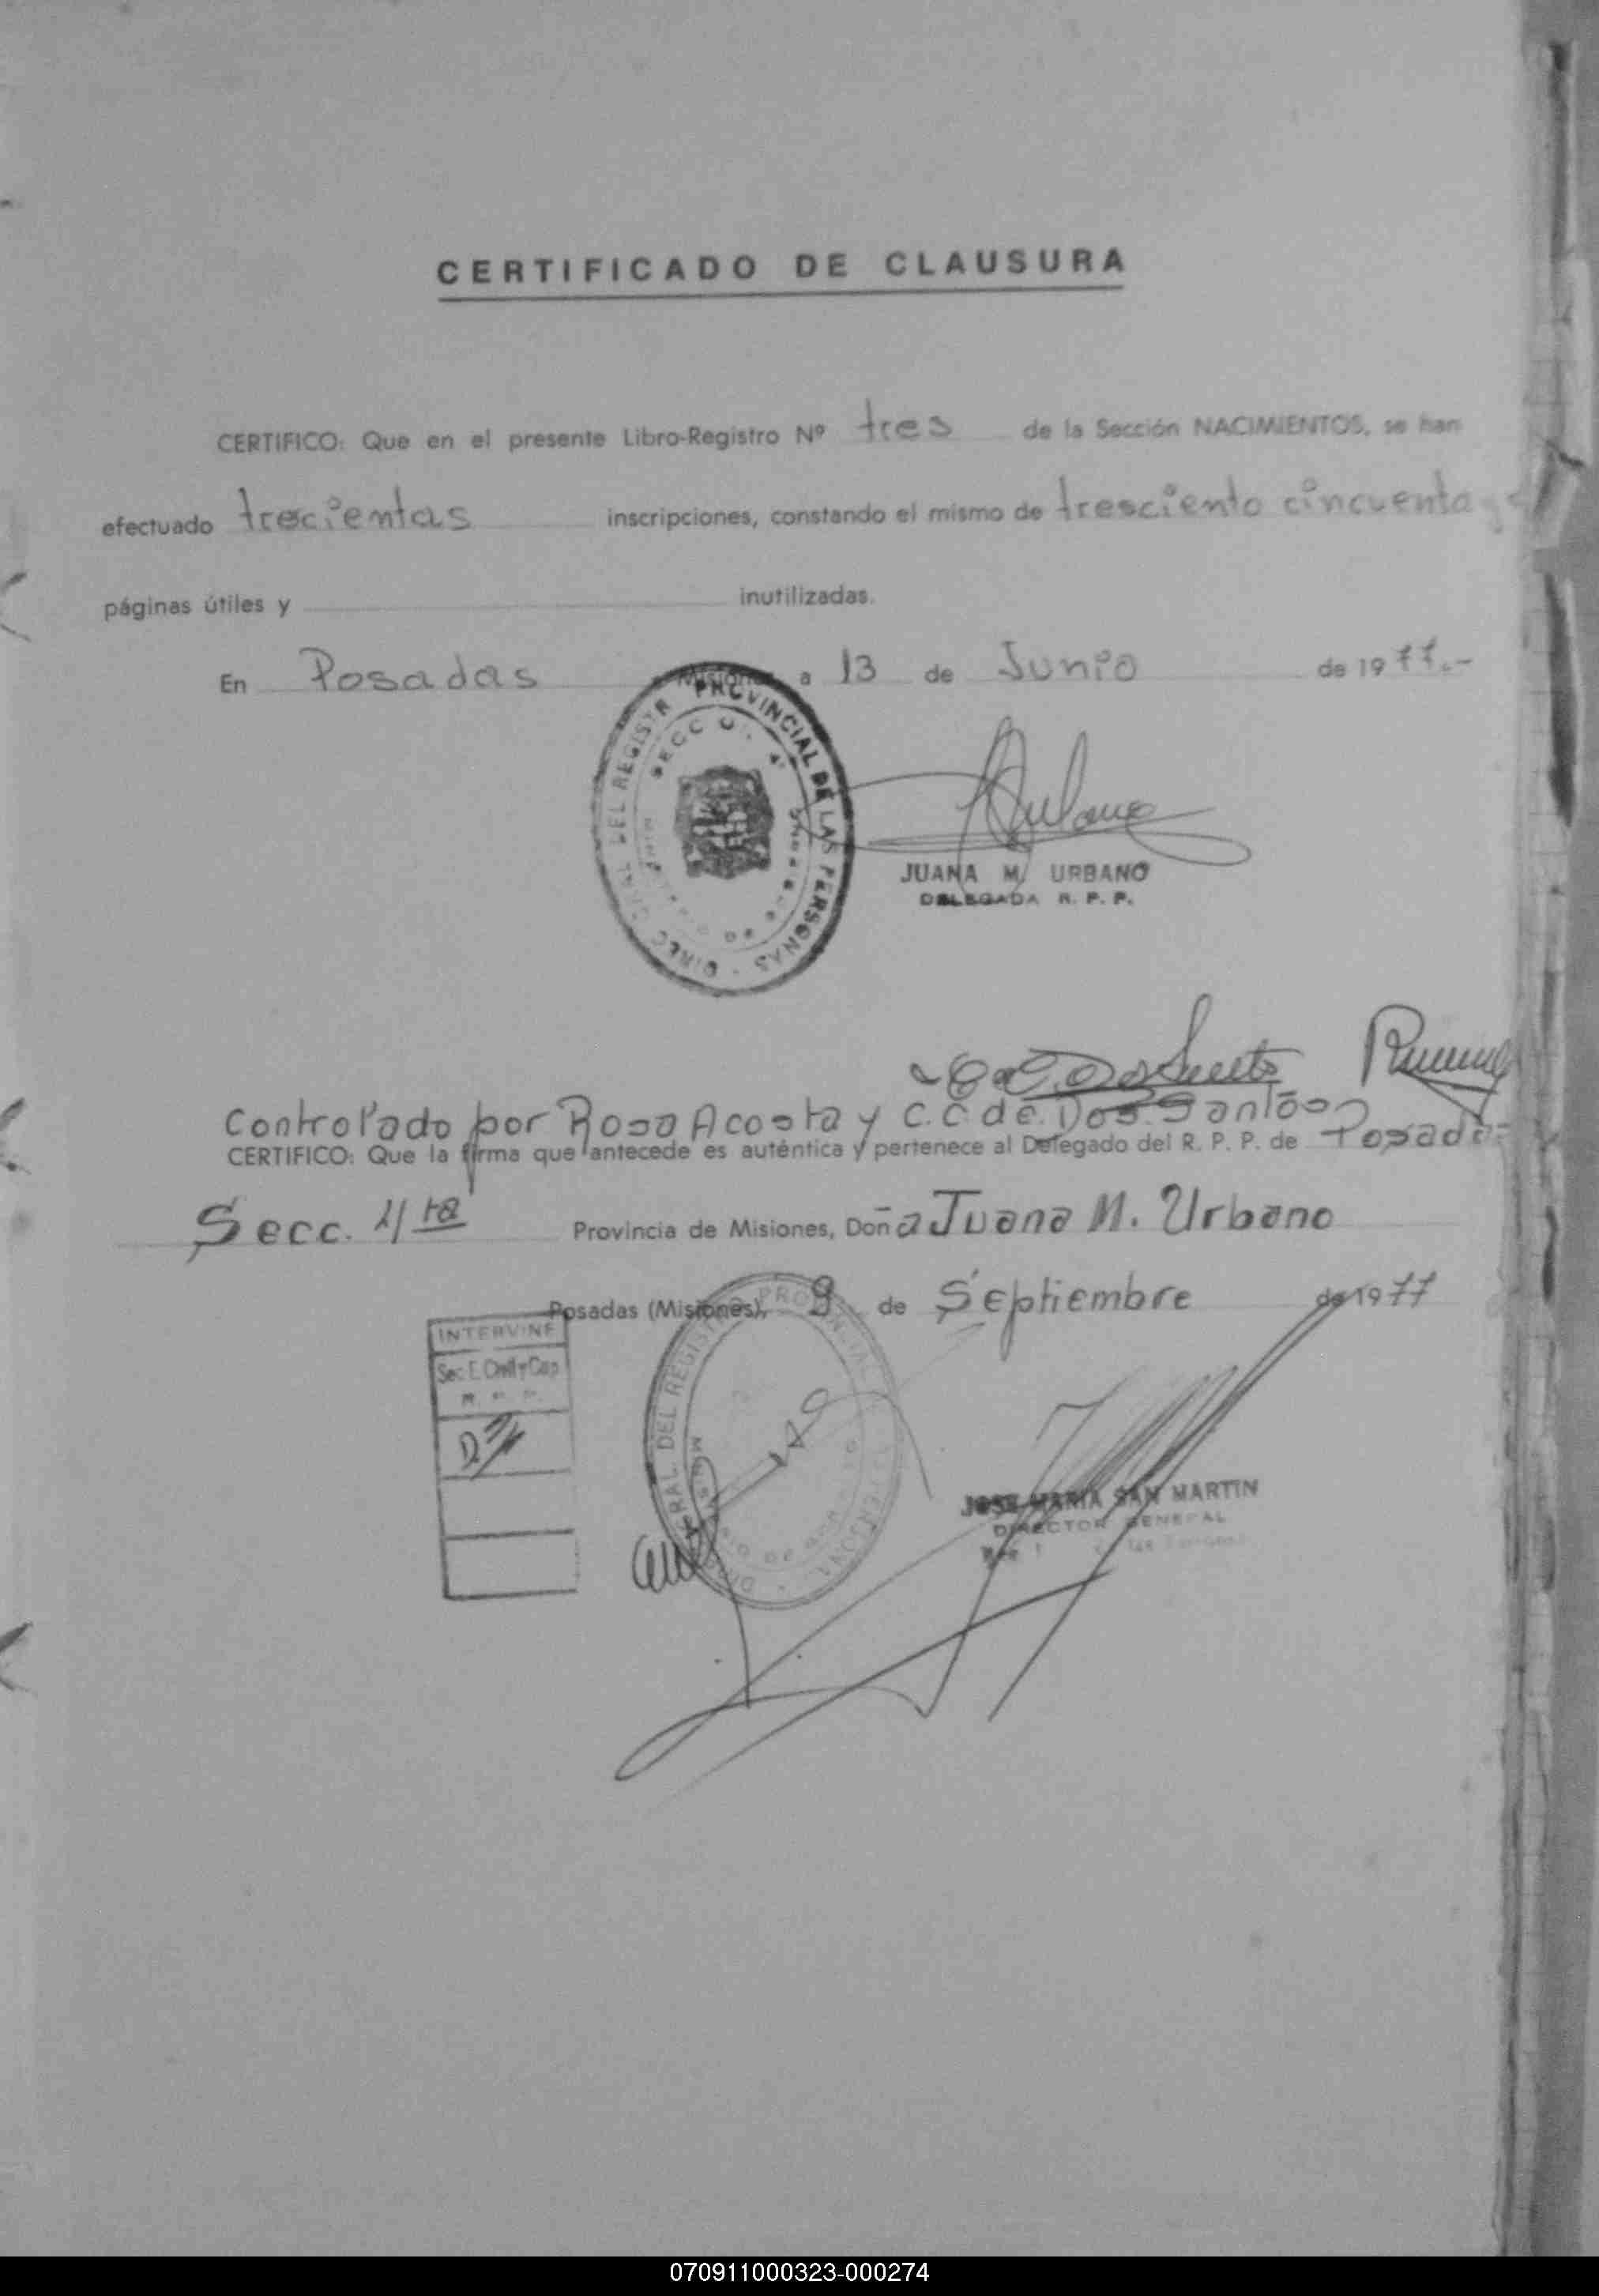 CERTIFICADO DE CLAUSURA
CERTIFICO: Que en el presente Libro-Registro Nº tres de la Sección NACIMIENTOS, se han
efectuado trecientas inscripciones, constando el mismo de tresciento cincuenta y
páginas útiles y inutilizadas.
En Posadas Misiones a 13 de Junio de 1977.-
DIREC. GRAL. DEL REGISTR PROVINCIAL DE LAS PERSONAS
JUANA M. URBANO
DELEGADA R. P. P.
Controlado por Rosa Acosta y C.C. de. Dos. Santos
CERTIFICO: Que la firma que antecede es auténtica y pertenece al Delegado del R. P. P. de Posadas
Secc. 4ta Provincia de Misiones, Doña Juana M. Urbano
Posadas (Misiones), 9 de Septiembre de 1977
INTERVINE
Sec. E. Civil y Cap
JOSE MARIA SAN MARTIN
DIRECTOR GENERAL
070911000323-000274